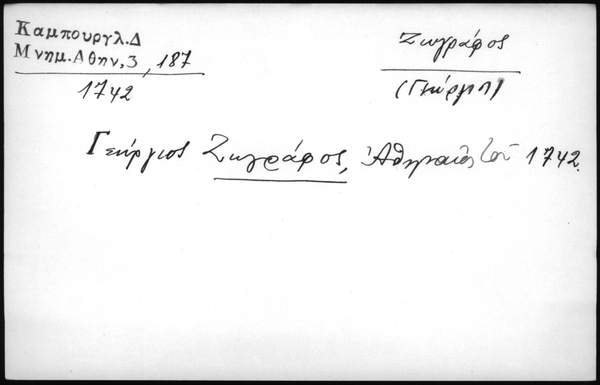 Καμπουργλ.Δ
Μνημ.Αθην,3, 187
1742
Ζωγράφος
(Γεώργιος)
Γεώργιος Ζωγράφος, Ἀθηναῖος τοῦ 1742.